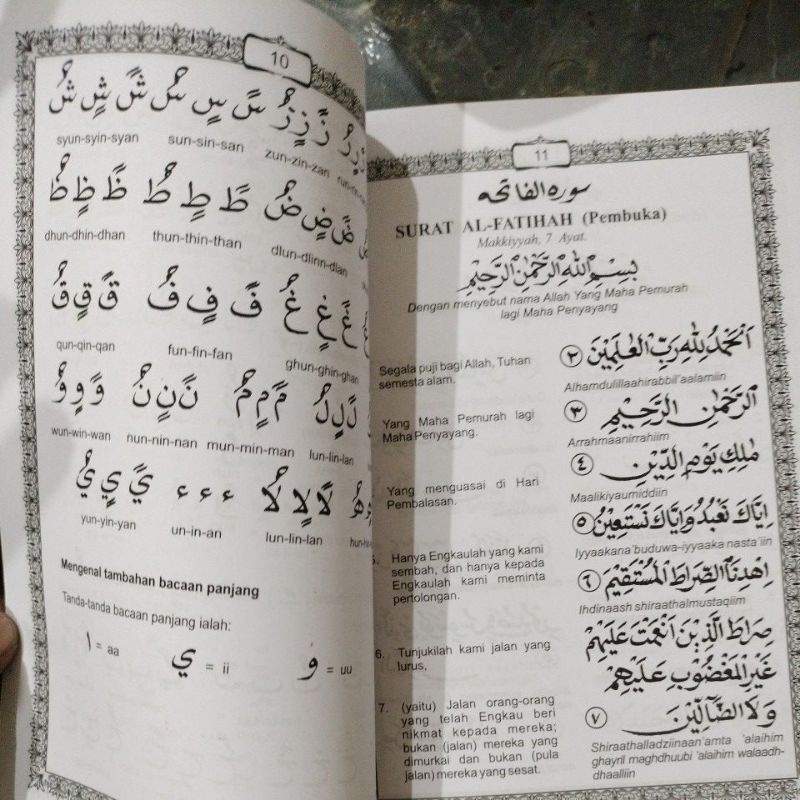 10
شٌ شٍ شً سٌ سٍ سً زٌ زٍ زً
syun-syin-syan sun-sin-san zun-zin-zan
ظٌ ظٍ ظً طٌ طٍ طً ضٌ ضٍ ضً
dhun-dhin-dhan thun-thin-than dlun-dlinn-dlan
قٌ قٍ قً فٌ فٍ فً غٌ غٍ غً
qun-qin-qan fun-fin-fan ghun-ghin-ghan
وٌ وٍ وً نٌ نٍ نً مٌ مٍ مً لٌ لٍ لً
wun-win-wan nun-nin-nan mun-min-man lun-lin-lan
يٌ يٍ يً ءٌ ءٍ ءً لاٌ لاٍ لاً
yun-yin-yan un-in-an lun-lin-lan
Mengenal tambahan bacaan panjang
Tanda-tanda bacaan panjang ialah:
ا = aa ي = ii و = uu
11
سورة الفاتحه
SURAT AL-FATIHAH (Pembuka)
Makkiyyah, 7 Ayat.
بِسْمِ اللهِ الرَّحْمٰنِ الرَّحِيْمِ
Dengan menyebut nama Allah Yang Maha Pemurah
lagi Maha Penyayang
اَلْحَمْدُ لِلّٰهِ رَبِّ الْعٰلَمِيْنَ ٢
Segala puji bagi Allah, Tuhan
semesta alam.
Alhamdulillaahirabbil'aalamiin
الرَّحْمٰنِ الرَّحِيْمِ ٣
Yang Maha Pemurah lagi
Maha Penyayang.
Arrahmaanirrahiim
مٰلِكِ يَوْمِ الدِّيْنِ ٤
Yang menguasai di Hari
Pembalasan.
Maalikiyaumiddiin
اِيَّاكَ نَعْبُدُ وَاِيَّاكَ نَسْتَعِيْنُ ٥
Iyyaakana'buduwa-iyyaaka nasta'iin
Hanya Engkaulah yang kami
sembah, dan hanya kepada
Engkaulah kami meminta
pertolongan.
اِهْدِنَا الصِّرَاطَ الْمُسْتَقِيْمَ ٦
Ihdinaash shiraathalmustaqiim
6. Tunjukilah kami jalan yang
lurus,
صِرَاطَ الَّذِيْنَ اَنْعَمْتَ عَلَيْهِمْ
غَيْرِ الْمَغْضُوْبِ عَلَيْهِمْ
وَلَا الضَّآلِّيْنَ ٧
7. (yaitu) Jalan orang-orang
yang telah Engkau beri
nikmat kepada mereka;
bukan (jalan) mereka yang
dimurkai dan bukan (pula
jalan) mereka yang sesat.
Shiraathalladziinaan'amta 'alaihim
ghayril maghdhuubi 'alaihim walaadh-
dhaalliin